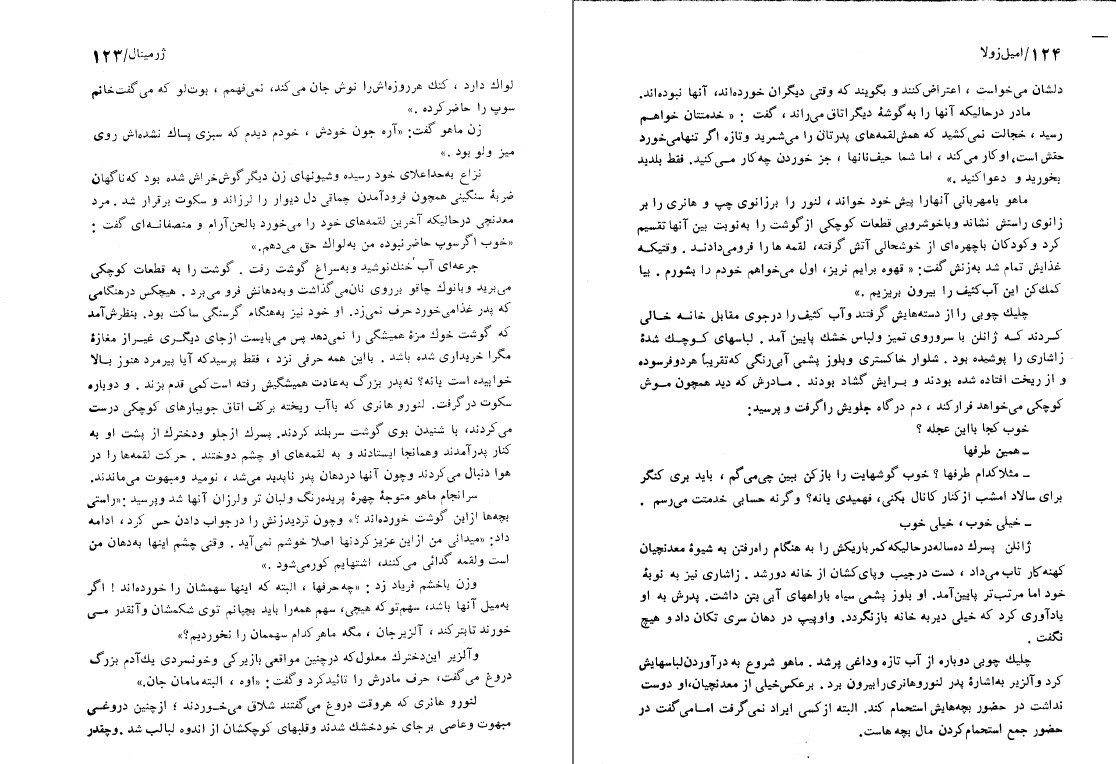 ژرمینال/۱۲۳
لواک دارد ، کتک هرروزه‌اش‌را نوش جان می‌کند، نمی‌فهمم ، بوت‌لو که می‌گفت‌خانم
سوپ را حاضرکرده .»
زن ماهو گفت: «آره جون خودش ، خودم دیدم که سبزی پاک نشده‌اش روی
میز ولو بود .»
نزاع به‌حداعلای خود رسیده وشیونهای زن دیگر گوش‌خراش شده بود که‌ناگهان
ضربهٔ سنگینی همچون فرودآمدن چماقی دل دیوار را لرزاند و سکوت برقرار شد . مرد
معدنچی درحالیکه آخرین لقمه‌های خود را می‌خورد بالحن‌آرام و منصفانـه‌ای گفت :
«خوب اگرسوپ حاضرنبوده من به‌لواک حق می‌دهم.»
جرعه‌ای آب‌خنک‌نوشید وبه‌سراغ گوشت رفت . گوشت را به قطعات کوچکی
می‌برید وبانوک چاقو برروی نان‌می‌گذاشت وبه‌دهانش فرو می‌برد . هیچکس درهنگامی
که پدر غذامی‌خورد حرف نمی‌زد. او خود نیز به‌هنگام گرسنگی ساکت بود. بنظرش‌آمد
که گوشت خوک مزهٔ همیشگی را نمی‌دهد پس می‌بایست ازجای دیگـری غیـراز مغازهٔ
مگرا خریداری شده باشد . بااین همه حرفی نزد ، فقط پرسیدکه آیا پیرمرد هنوز بـالا
خوابیده است یانه؟ نه‌پدر بزرگ به‌عادت همیشگیش رفته است‌کمی قدم بزند . و دوباره
سکوت درگرفت. لنورو هانری که باآب ریخته برکف اتاق جویبارهای کوچکی درست
می‌کردند، با شنیدن بوی گوشت سربلند کردند. پسرک ازجلو ودخترک از پشت او به
کنار پدرآمدند وهمانجا ایستادند و به لقمه‌های او چشم دوختند . حرکت لقمه‌ها را در
هوا دنبال می‌کردند وچون آنها دردهان پدر ناپدید می‌شد ، نومید ومبهوت می‌ماندند.
سرانجام ماهو متوجهٔ چهرهٔ پریده‌رنگ ولبان تر ولرزان آنها شد وپرسید :«راستی
بچه‌ها ازاین گوشت خورده‌اند ؟» وچون تردیدزنش را درجواب دادن حس کرد ، ادامه
داد: «میدانی من ازاین عزیز کردنها اصلا خوشم نمی‌آید . وقتی چشم اینها به‌دهان من
است ولقمه گدائی می‌کنند، اشتهایم کورمی‌شود .»
وزن باخشم فریاد زد : «چه‌حرفها ، البته که اینها سهمشان را خورده‌اند ! اگر
به‌میل آنها باشد، سهم‌توکه هیچی، سهم همه‌را باید بچپانم توی شکمشان وآنقدر مـی
خورند تابترکند ، آلزیرجان ، مگه ماهرکدام سهممان را نخوردیم؟»
وآلزیر این‌دخترک معلول‌که درچنین مواقعی بازیرکی وخونسردی یک‌آدم بزرگ
دروغ می‌گفت، حرف مادرش را تائیدکرد وگفت: «اوه ، البته‌مامان جان.»
لنورو هانری که هروقت دروغ می‌گفتند شلاق می‌خـوردند ؛ ازچنین دروغـی
مبهوت وعاصی برجای خودخشک شدند وقلبهای کوچکشان از اندوه لبالب شد .وچقدر
۱۲۴/امیل‌زولا
دلشان می‌خواست ، اعتراض‌کنند و بگویند که وقتی دیگران خورده‌اند، آنها نبوده‌اند.
مادر درحالیکه آنها را به‌گوشهٔ دیگراتاق می‌راند ، گفت : « خدمتتان خواهـم
رسید ، خجالت نمی‌کشید که همش‌لقمه‌های پدرتان را می‌شمرید وتازه اگر تنهامی‌خورد
حقش است، اوکار می‌کند ، اما شما حیف‌نانها ، جز خوردن چه‌کار مـی‌کنید. فقط بلدید
بخورید و دعواکنید .»
ماهو بامهربانی آنهارا پیش خود خواند ، لنور را برزانوی چپ و هانری را بر
زانوی راستش نشاند وباخوشرویی قطعات کوچکی ازگوشت را به‌نوبت بین آنها تقسیم
کرد وکودکان باچهره‌ای از خوشحالی آتش گرفته، لقمه ها را فرومی‌دادنـد . وقتیکـه
غذایش تمام شد به‌زنش گفت: « قهوه برایم نریز، اول می‌خواهم خودم را بشورم . بیا
کمک‌کن این آب‌کثیف را بیرون بریزیم .»
چلیک چوبی را از دسته‌هایش گرفتند وآب کثیف را درجوی مقابل خانـه خـالی
کـردند کـه ژانلن با سروروی تمیز ولباس خشک پایین آمد. لباسهای کوچـک شدهٔ
زاشاری را پوشیده بود . شلوار خاکستری وبلوز پشمی آبی‌رنگی که‌تقریباً هردوفرسوده
و از ریخت افتاده شده بودند و بـرایش گشاد بودند . مـادرش که دید همچون مـوش
کوچکی می‌خواهد فرارکند ، دم درگاه جلویش راگرفت و پرسید:
خوب کجا بااین عجله ؟
ـ همین طرفها
ـ مثلاکدام طرفها ؟ خوب گوشهایت را بازکن ببین چی‌می‌گم ، باید بری کنگر
برای سالاد امشب ازکنار کانال بکنی، فهمیدی یانه؟ وگرنه حسابی خدمتت می‌رسم .
ـ خیلی خوب ، خیلی خوب
ژانلن پسرک ده‌ساله‌درحالیکه‌کمرباریکش را به هنگام راه‌رفتن به شیوهٔ معدنچیان
کهنه‌کار تاب می‌داد ، دست درجیب وپای‌کشان از خانه دورشد . زاشاری نیز به نوبهٔ
خود اما مرتب‌تر پایین‌آمد. او بلوز پشمی سیاه باراههای آبی بتن داشت. پدرش به او
یادآوری کرد که خیلی دیربه خانه بازنگردد. واوپیپ در دهان سری تکان دادو هیچ
نگفت .
چلیک چوبی دوباره از آب تازه وداغی پرشد . ماهو شروع به درآوردن‌لباسهایش
کرد وآلزیر به‌اشارهٔ پدر لنوروهانری‌رابیرون برد . برعکس‌خیلی از معدنچیان،او دوست
نداشت در حضور بچه‌هایش استحمام کند. البته ازکسی ایراد نمی‌گرفت امـامی‌گفت در
حضور جمع استحمام‌کردن مال بچه هاست.